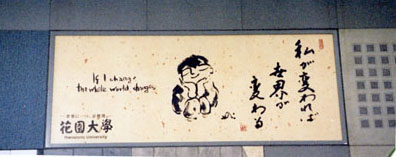 If I change
the whole world changes
私が変われば
世界が
変わる
花園大學
Hanazono University